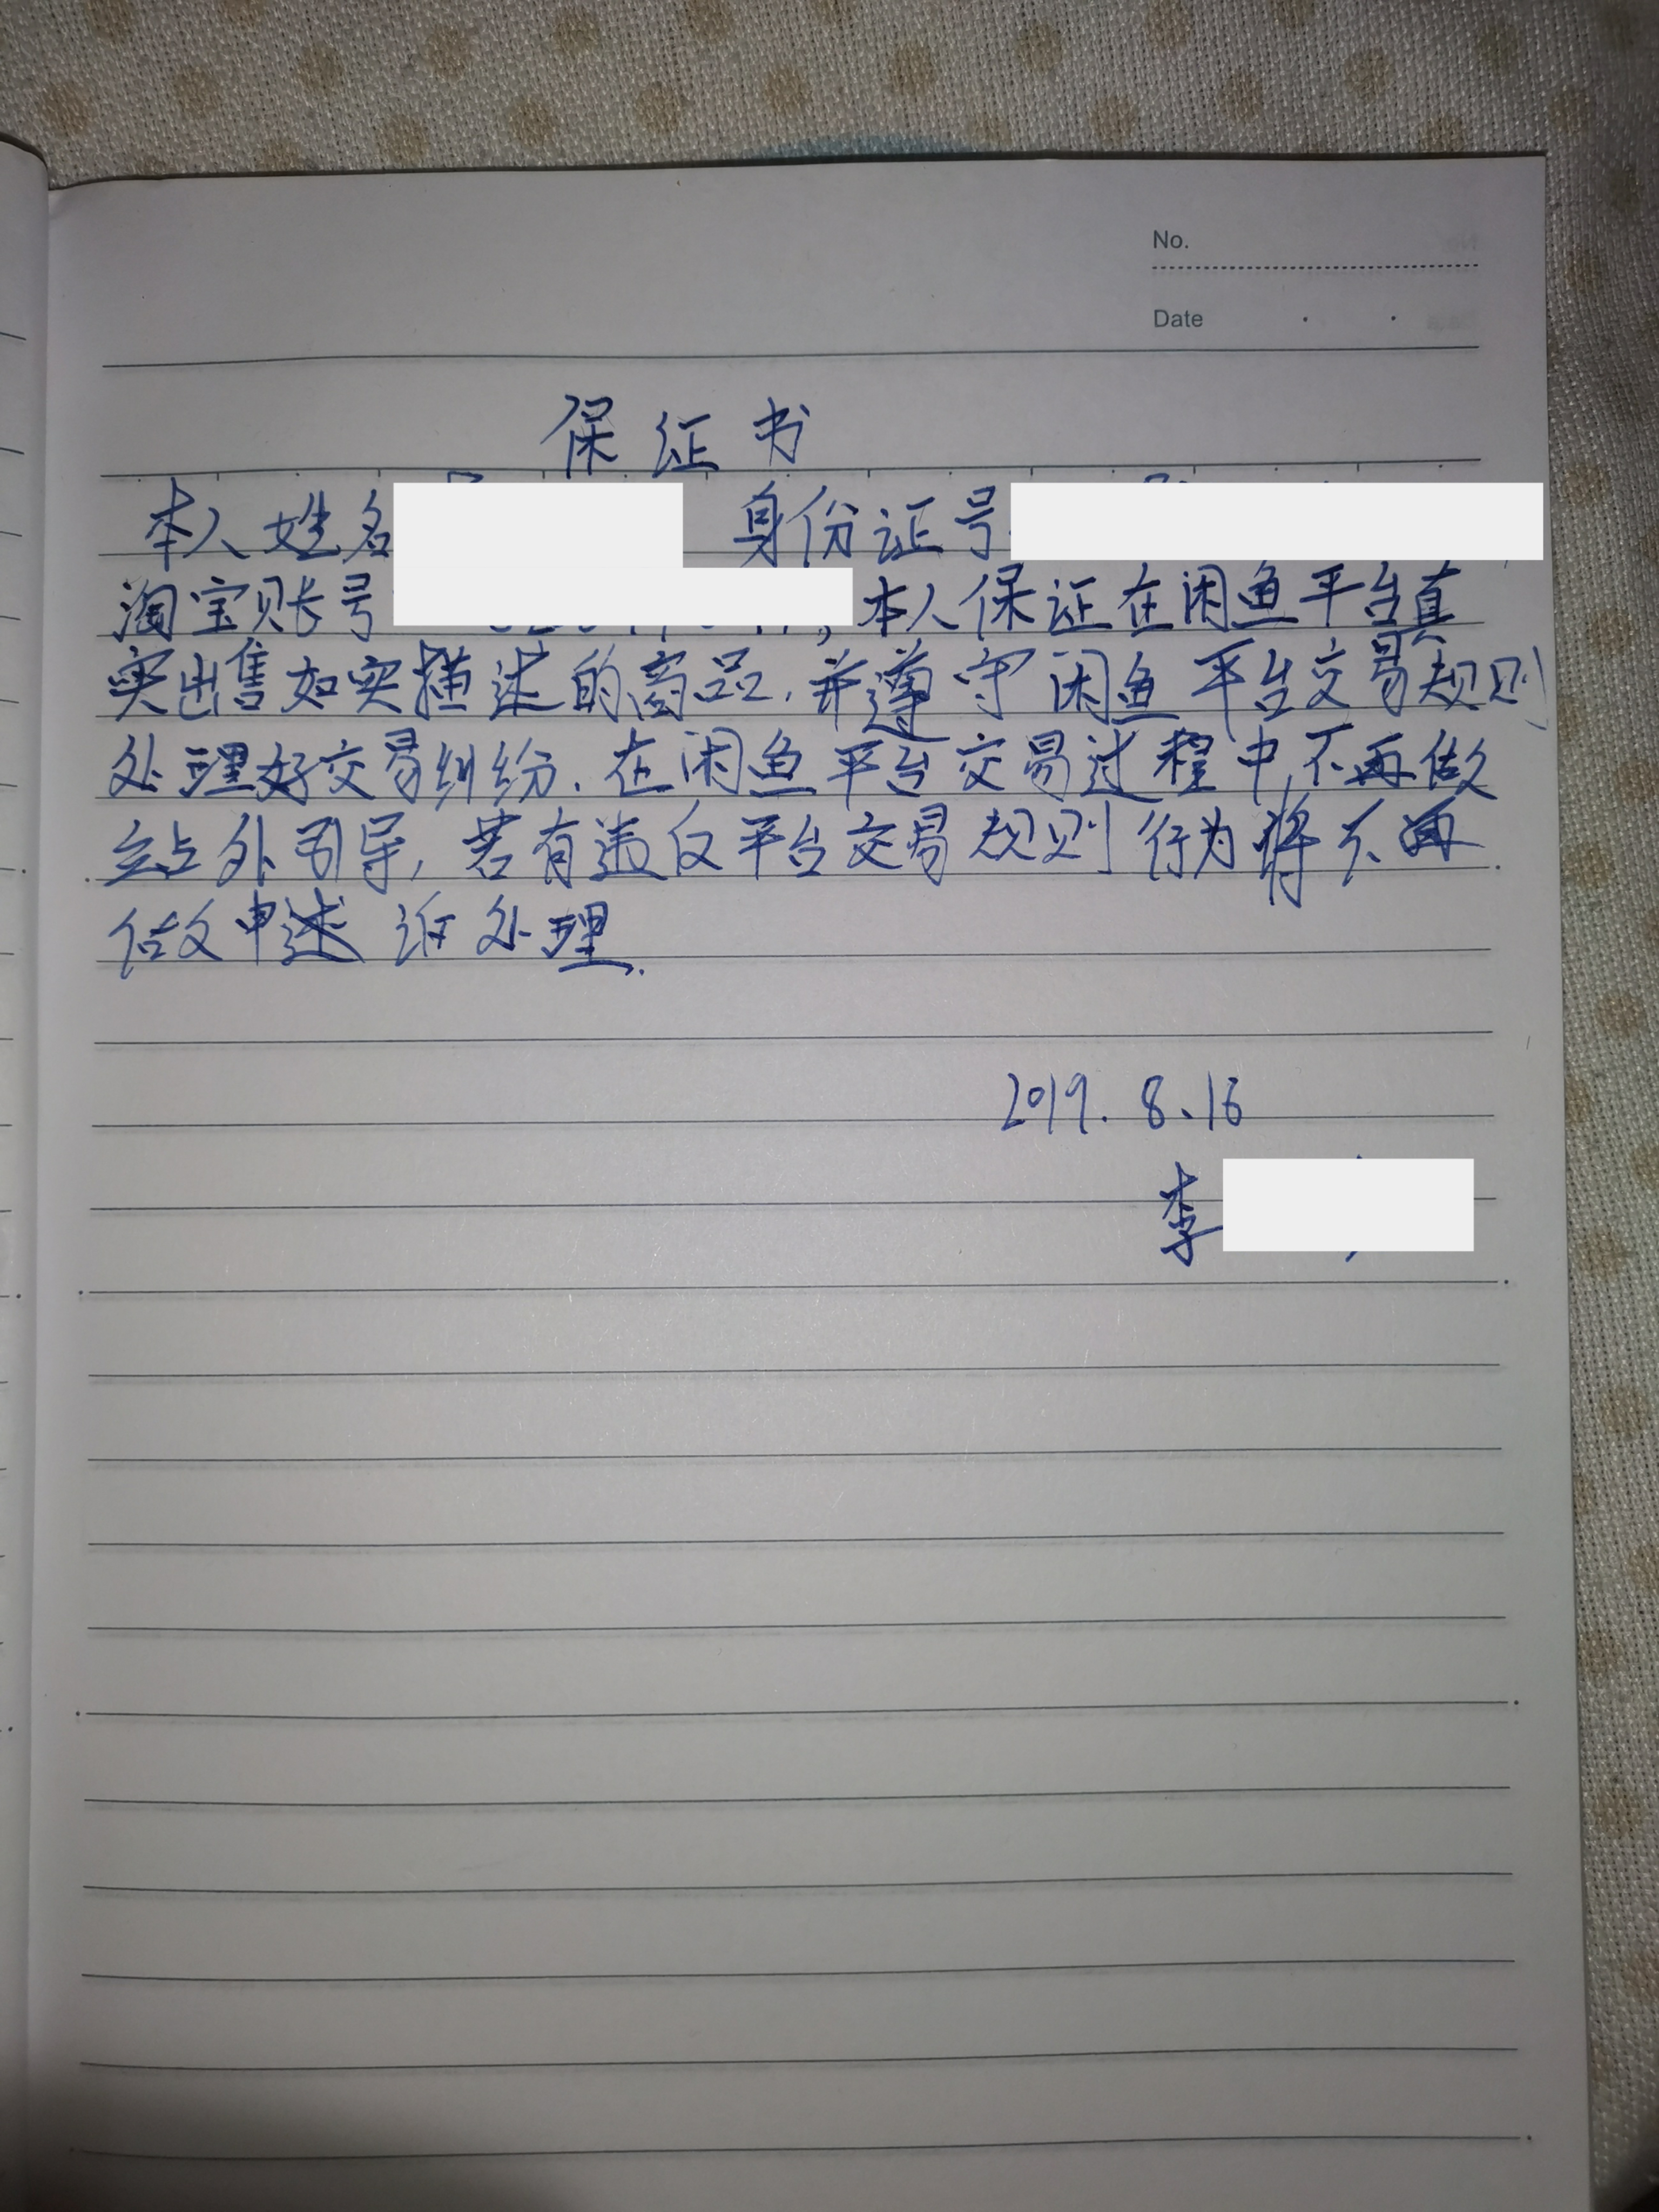 No.
Date
保证书
本人姓名 身份证号
淘宝账号 ,本人保证在闲鱼平台真
实出售如实描述的商品,并遵守闲鱼平台交易规则
处理好交易纠纷.在闲鱼平台交易过程中,不再做
站外引导,若有违反平台交易规则行为将不再
做申诉处理.
2019.8.16
李